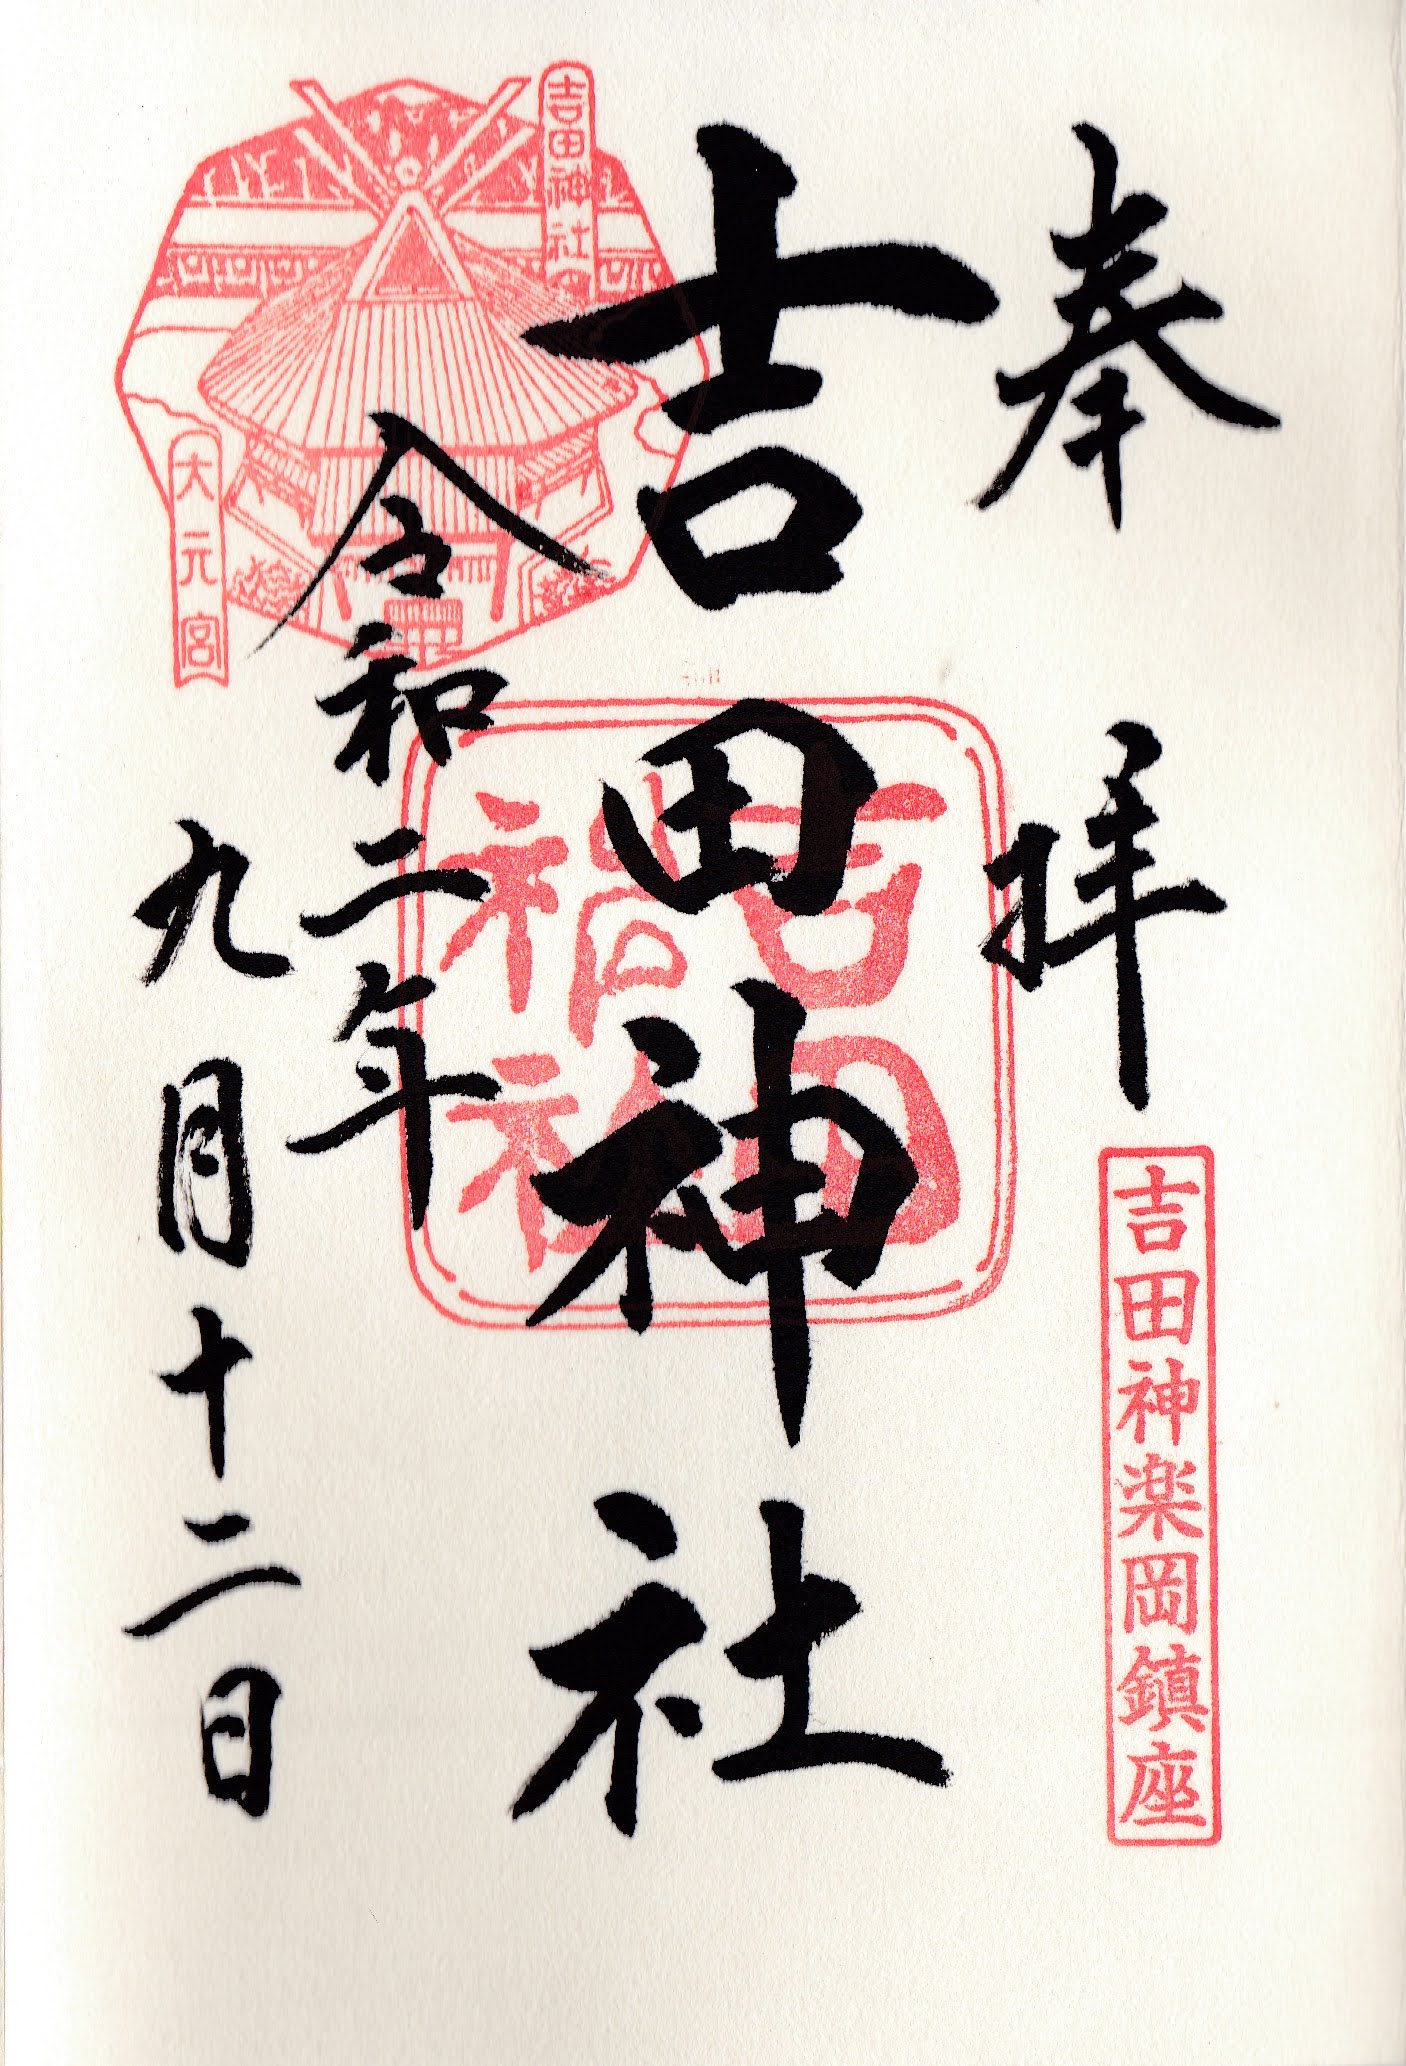 奉拝
吉田神楽岡鎮座
吉田神社
吉田神社
吉田
神社
令和二年
九月十二日
大元宮